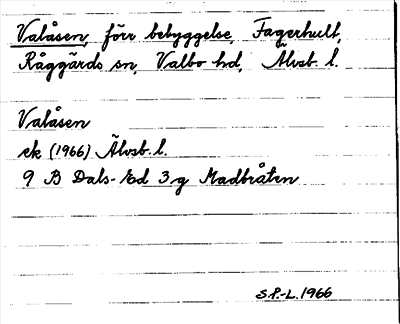 Valåsen, förr bebyggelse, Fagerhult,
Råggärds sn, Valbo hd, Älvsb. l.
Valåsen
ek (1966) Älvsb. l.
9 B Dals-Ed 3 g Madbråten
S.P.-L. 1966